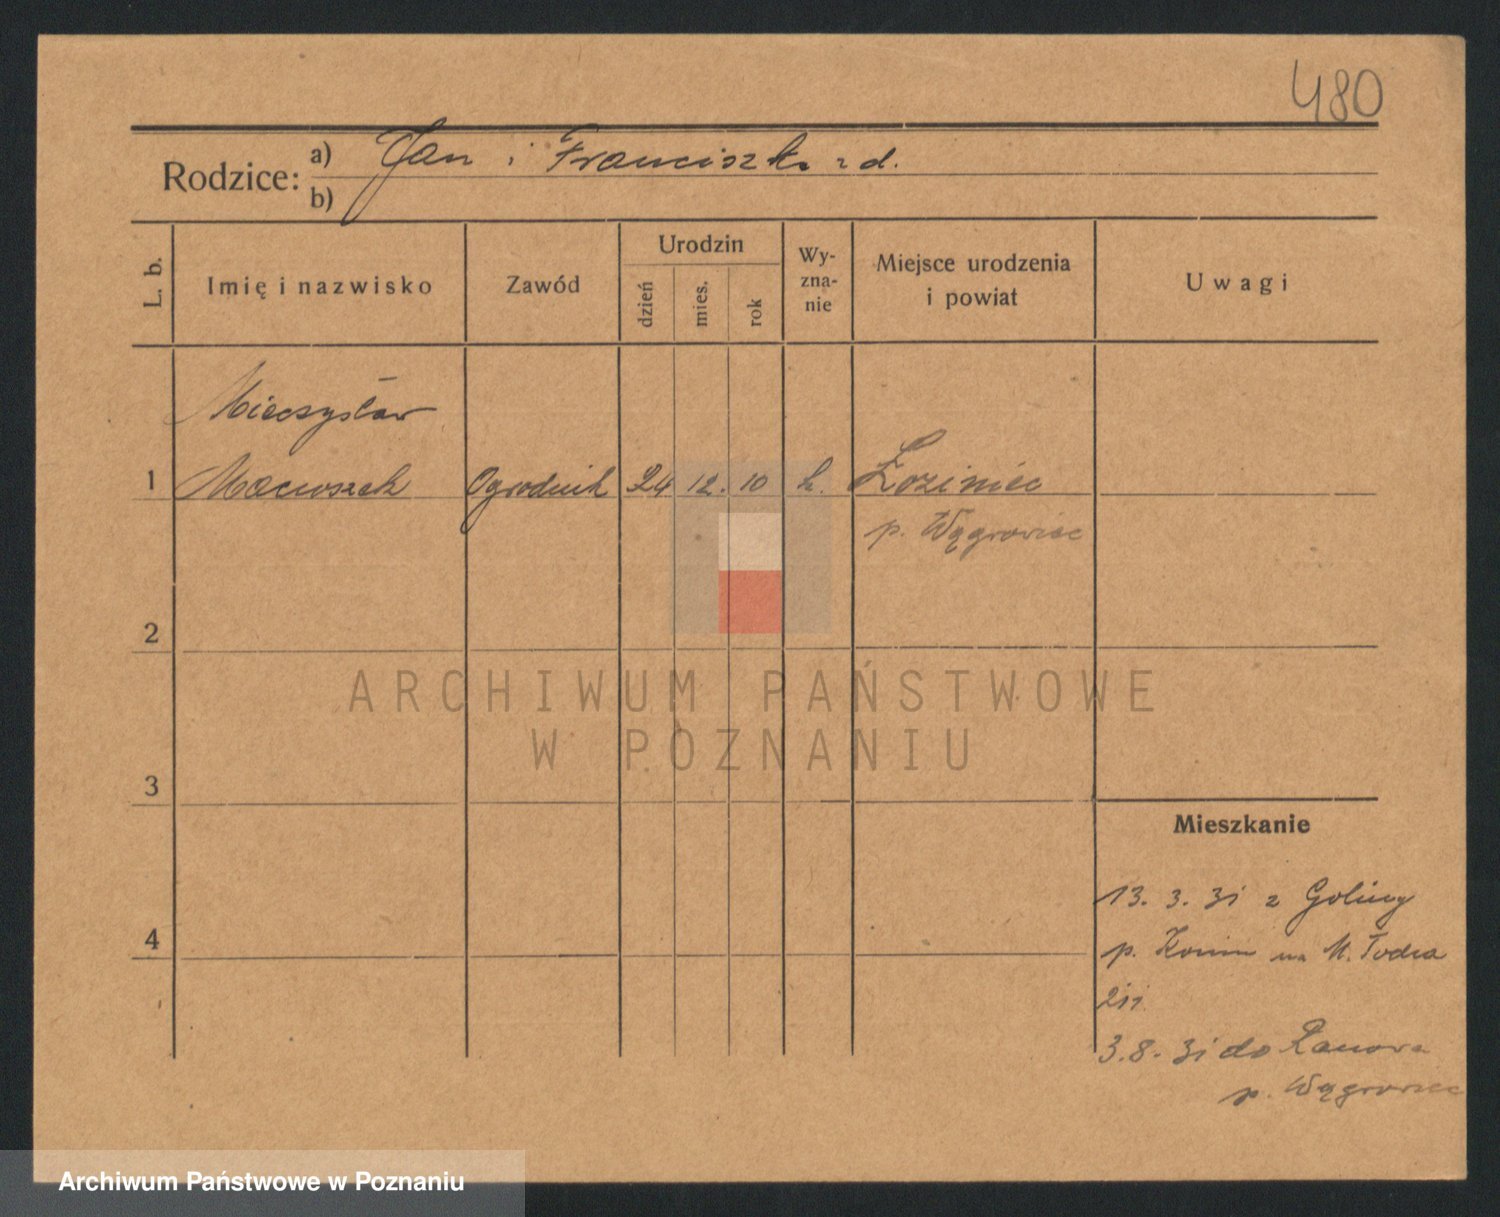 480
Rodzice: a) Jan i Franciszka z d.
b)
L. b. Imię i nazwisko Zawód Urodzin dzień mies. rok Wy-zna-nie Miejsce urodzenia i powiat Uwagi
Mieczysław
1 Macioszek Ogrodnik 24 12. 10 k. Łoziniec
p. Wągrowiec
2
ARCHIWUM PAŃSTWOWE
W POZNANIU
3
Mieszkanie
13. 3. 31 z Goliny
4
p. Konin na M. Todra
3. 8. 31 do
p. Wągrowiec
Archiwum Państwowe w Poznaniu